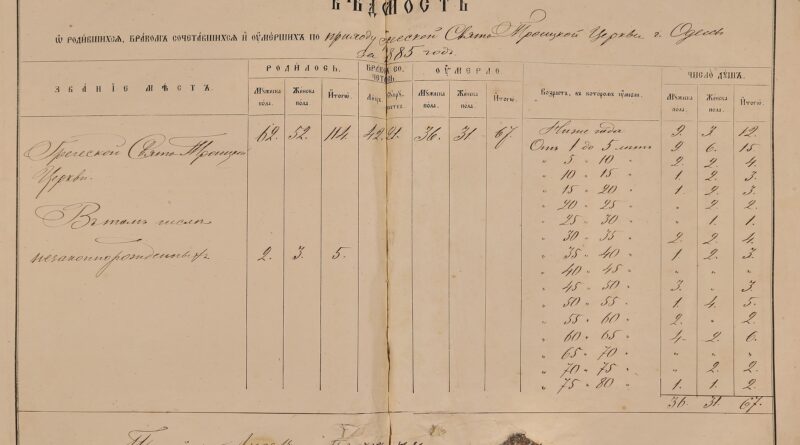 ВѢДОМОСТЬ
Ѿ РОДИВШИХСѦ, БРАКОМЪ СОЧЕТАВШИХСѦ И ОУМЕРШИХЪ ПО приходу Греческой Свято Троицкой Церкви г. Одессы
За 1885 годъ.
ЗВАНІЕ МѢСТЪ. РОДИЛОСЬ. БРАКОМЪ СОЧЕТАЛ. ОУМЕРЛО. ЧИСЛО ДУШЪ.
Мꙋжеска пола. Женска пола. Итого. Мꙋжеска пола. Женска пола. Итого. Возрастъ, въ которомъ ꙋмерли. Мꙋжеска пола. Женска пола. Итого.
Греческой Свято Троицкой 62. 52. 114. 42. 21. 36. 31. 67. Ниже года 9. 3. 12.
Церкви. Отъ 1 до 5 лѣтъ 9. 6. 15.
" 5 " 10 " 2. 2. 4.
" 10 " 15 " 1. 2. 3.
" 15 " 20 " 1. 2. 3.
Въ томъ числѣ " 20 " 25 " " 2. 2.
" 25 " 30 " " 1. 1.
" 30 " 35 " 2. 2. 4.
незаконнорожденныхъ 2. 3. 5. " 35 " 40 " 1. 2. 3.
" 40 " 45 " " " "
" 45 " 50 " 3. " 3.
" 50 " 55 " 1. 4. 5.
" 55 " 60 " 2. " 2.
" 60 " 65 " 4. 2. 6.
" 65 " 70 " " " "
" 70 " 75 " " 2. 2.
" 75 " 80 " 1. 1. 2.
36. 31. 67.